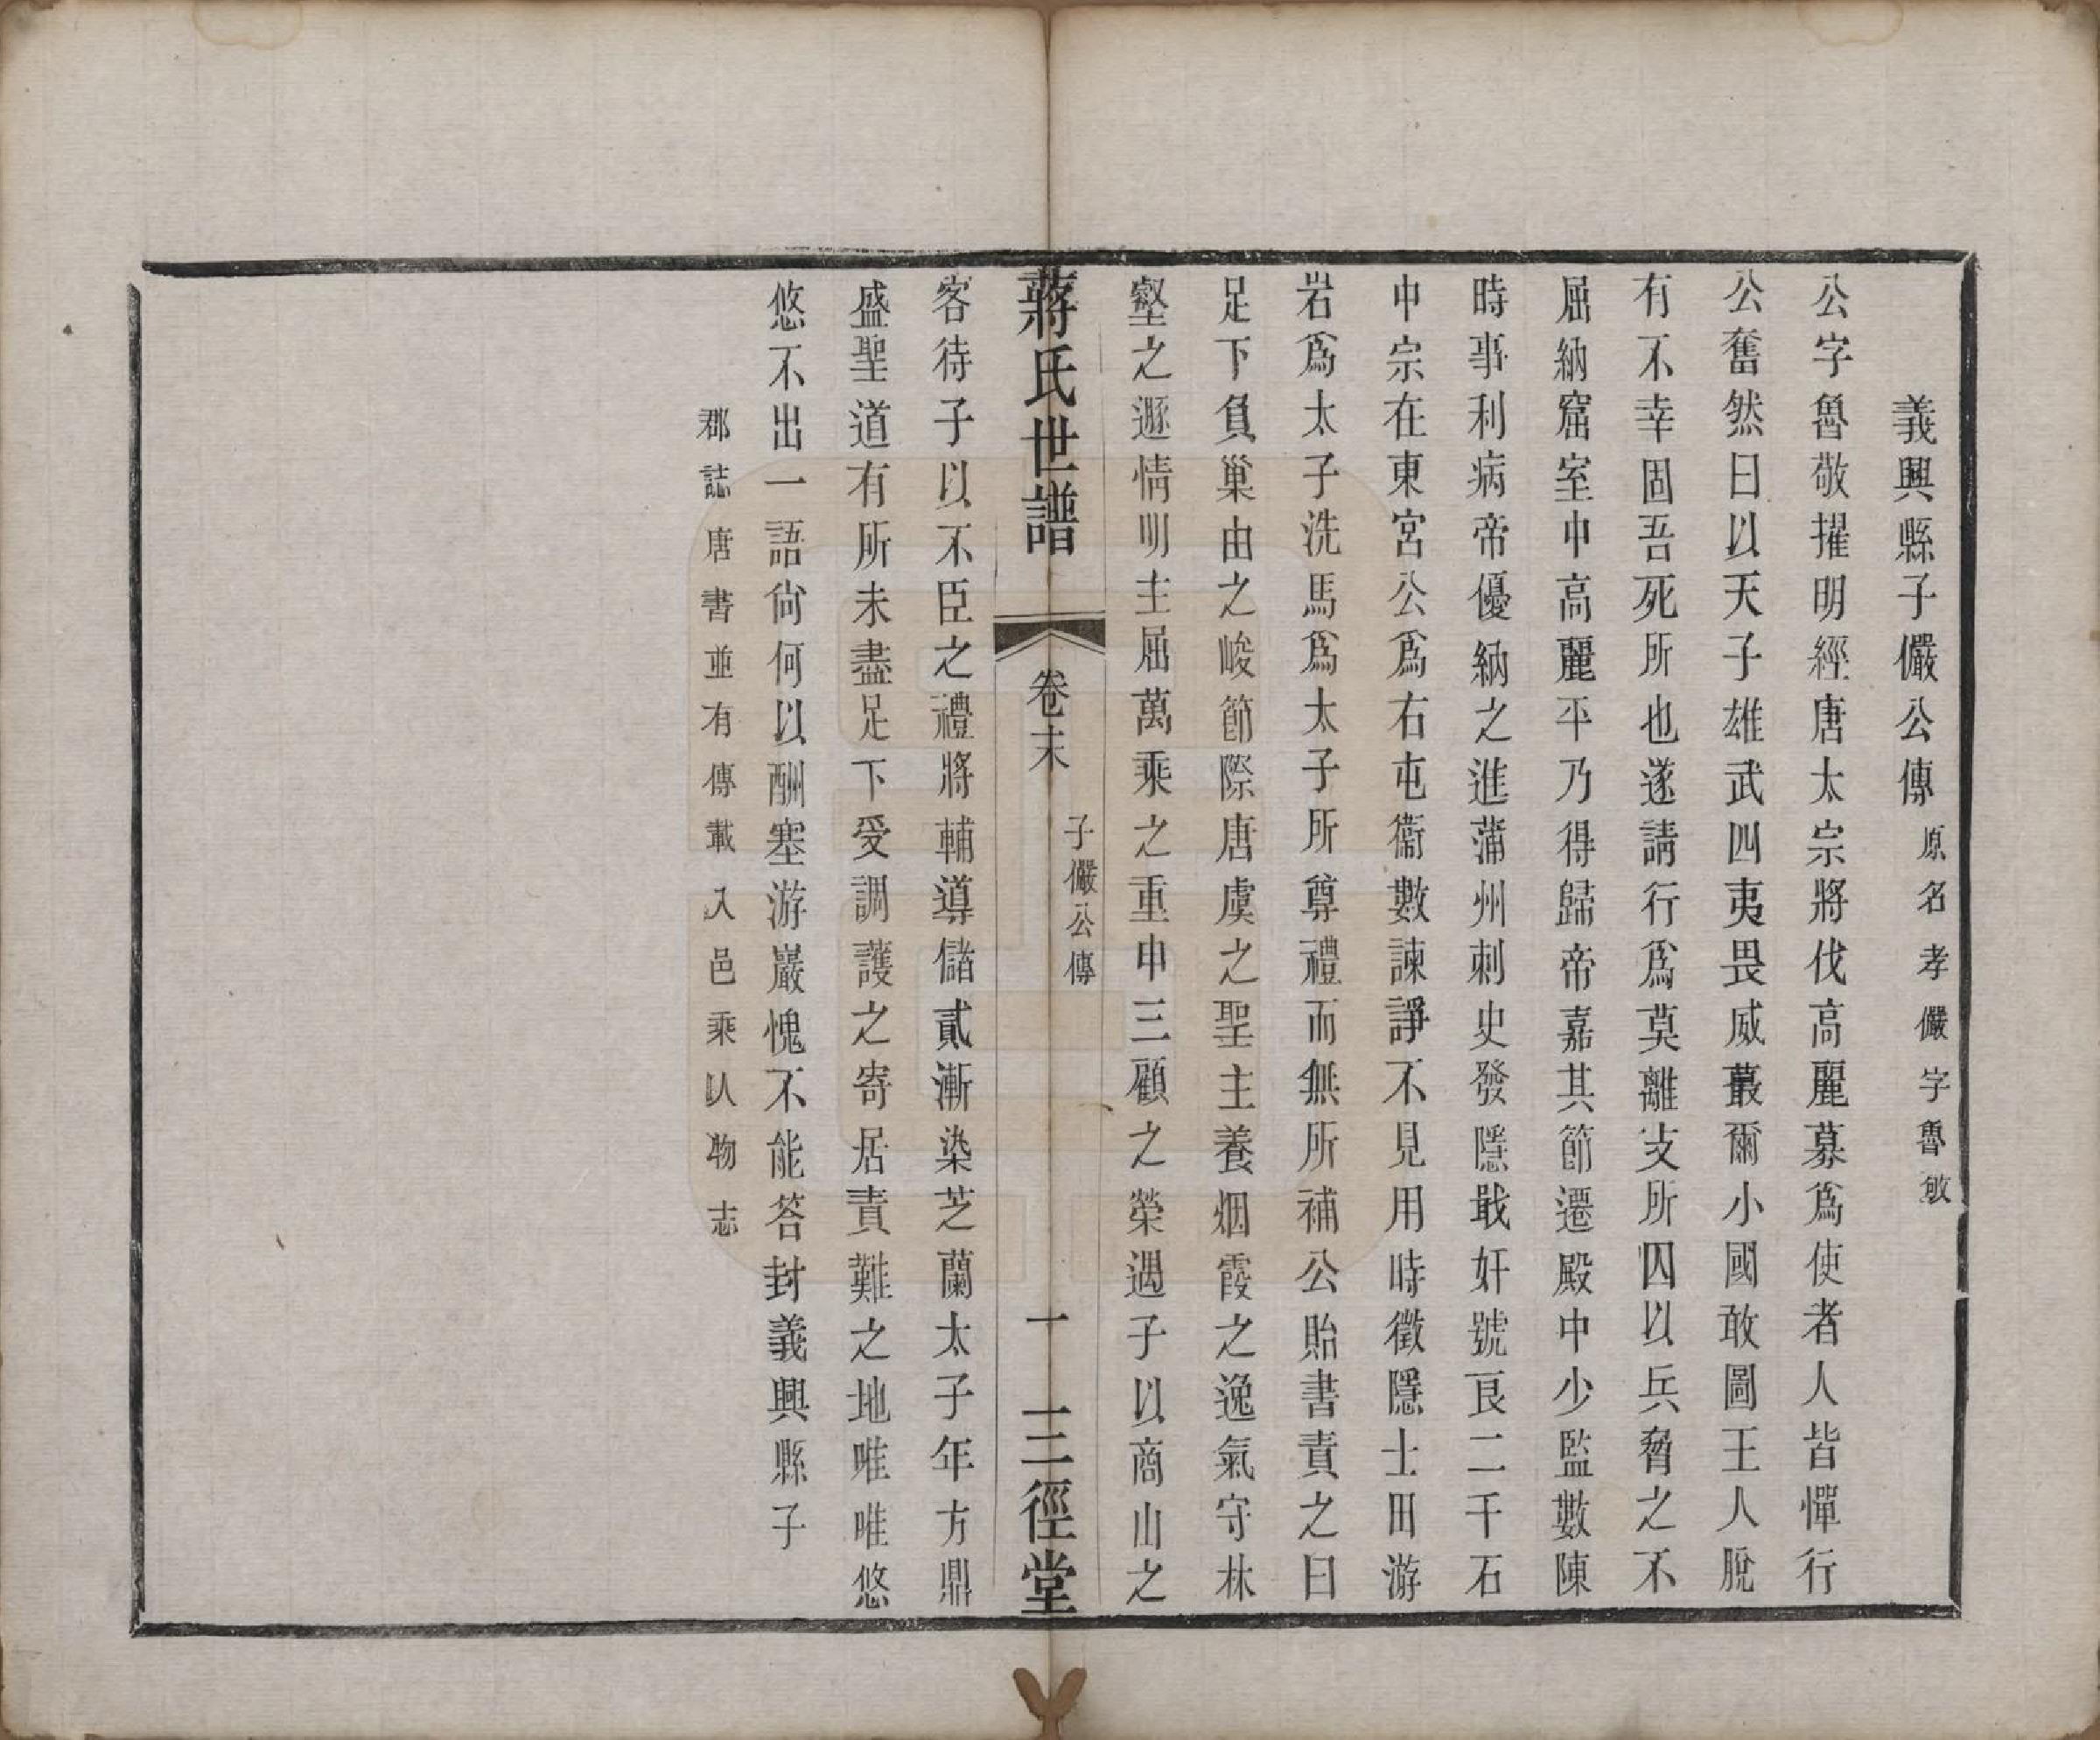 義興縣子儼公傳原名孝儼字魯敏
公字魯敬擢明經唐太宗將伐高麗募爲使者人皆憚行
公奮然曰以天子雄武四夷畏威蕞爾小國敢圖王人脫
有不幸固吾死所也遂請行爲莫離支所囚以兵脅之不
屈納窟室中高麗平乃得歸帝嘉其節遷殿中少監數陳
時事利病帝優納之進蒲州刺史發隱戢奸號良二千石
中宗在東宮公爲右屯衞數諫諍不見用時徵隱士田游
岩爲太子洗馬爲太子所尊禮而無所補公貽書責之曰
足下負巢由之峻節際唐虞之聖主養烟霞之逸氣守林
壑之遯情明主屈萬乘之重申三顧之榮遇子以商山之
蔣氏世譜 卷末 子儼公傳 一 三徑堂
客待子以不臣之禮將輔導儲貳漸染芝蘭太子年方鼎
盛聖道有所未盡足下受調護之寄居責難之地唯唯悠
悠不出一語尙何以酬塞游巖愧不能答封義興縣子
郡誌唐書並有傳載入邑乘人物志